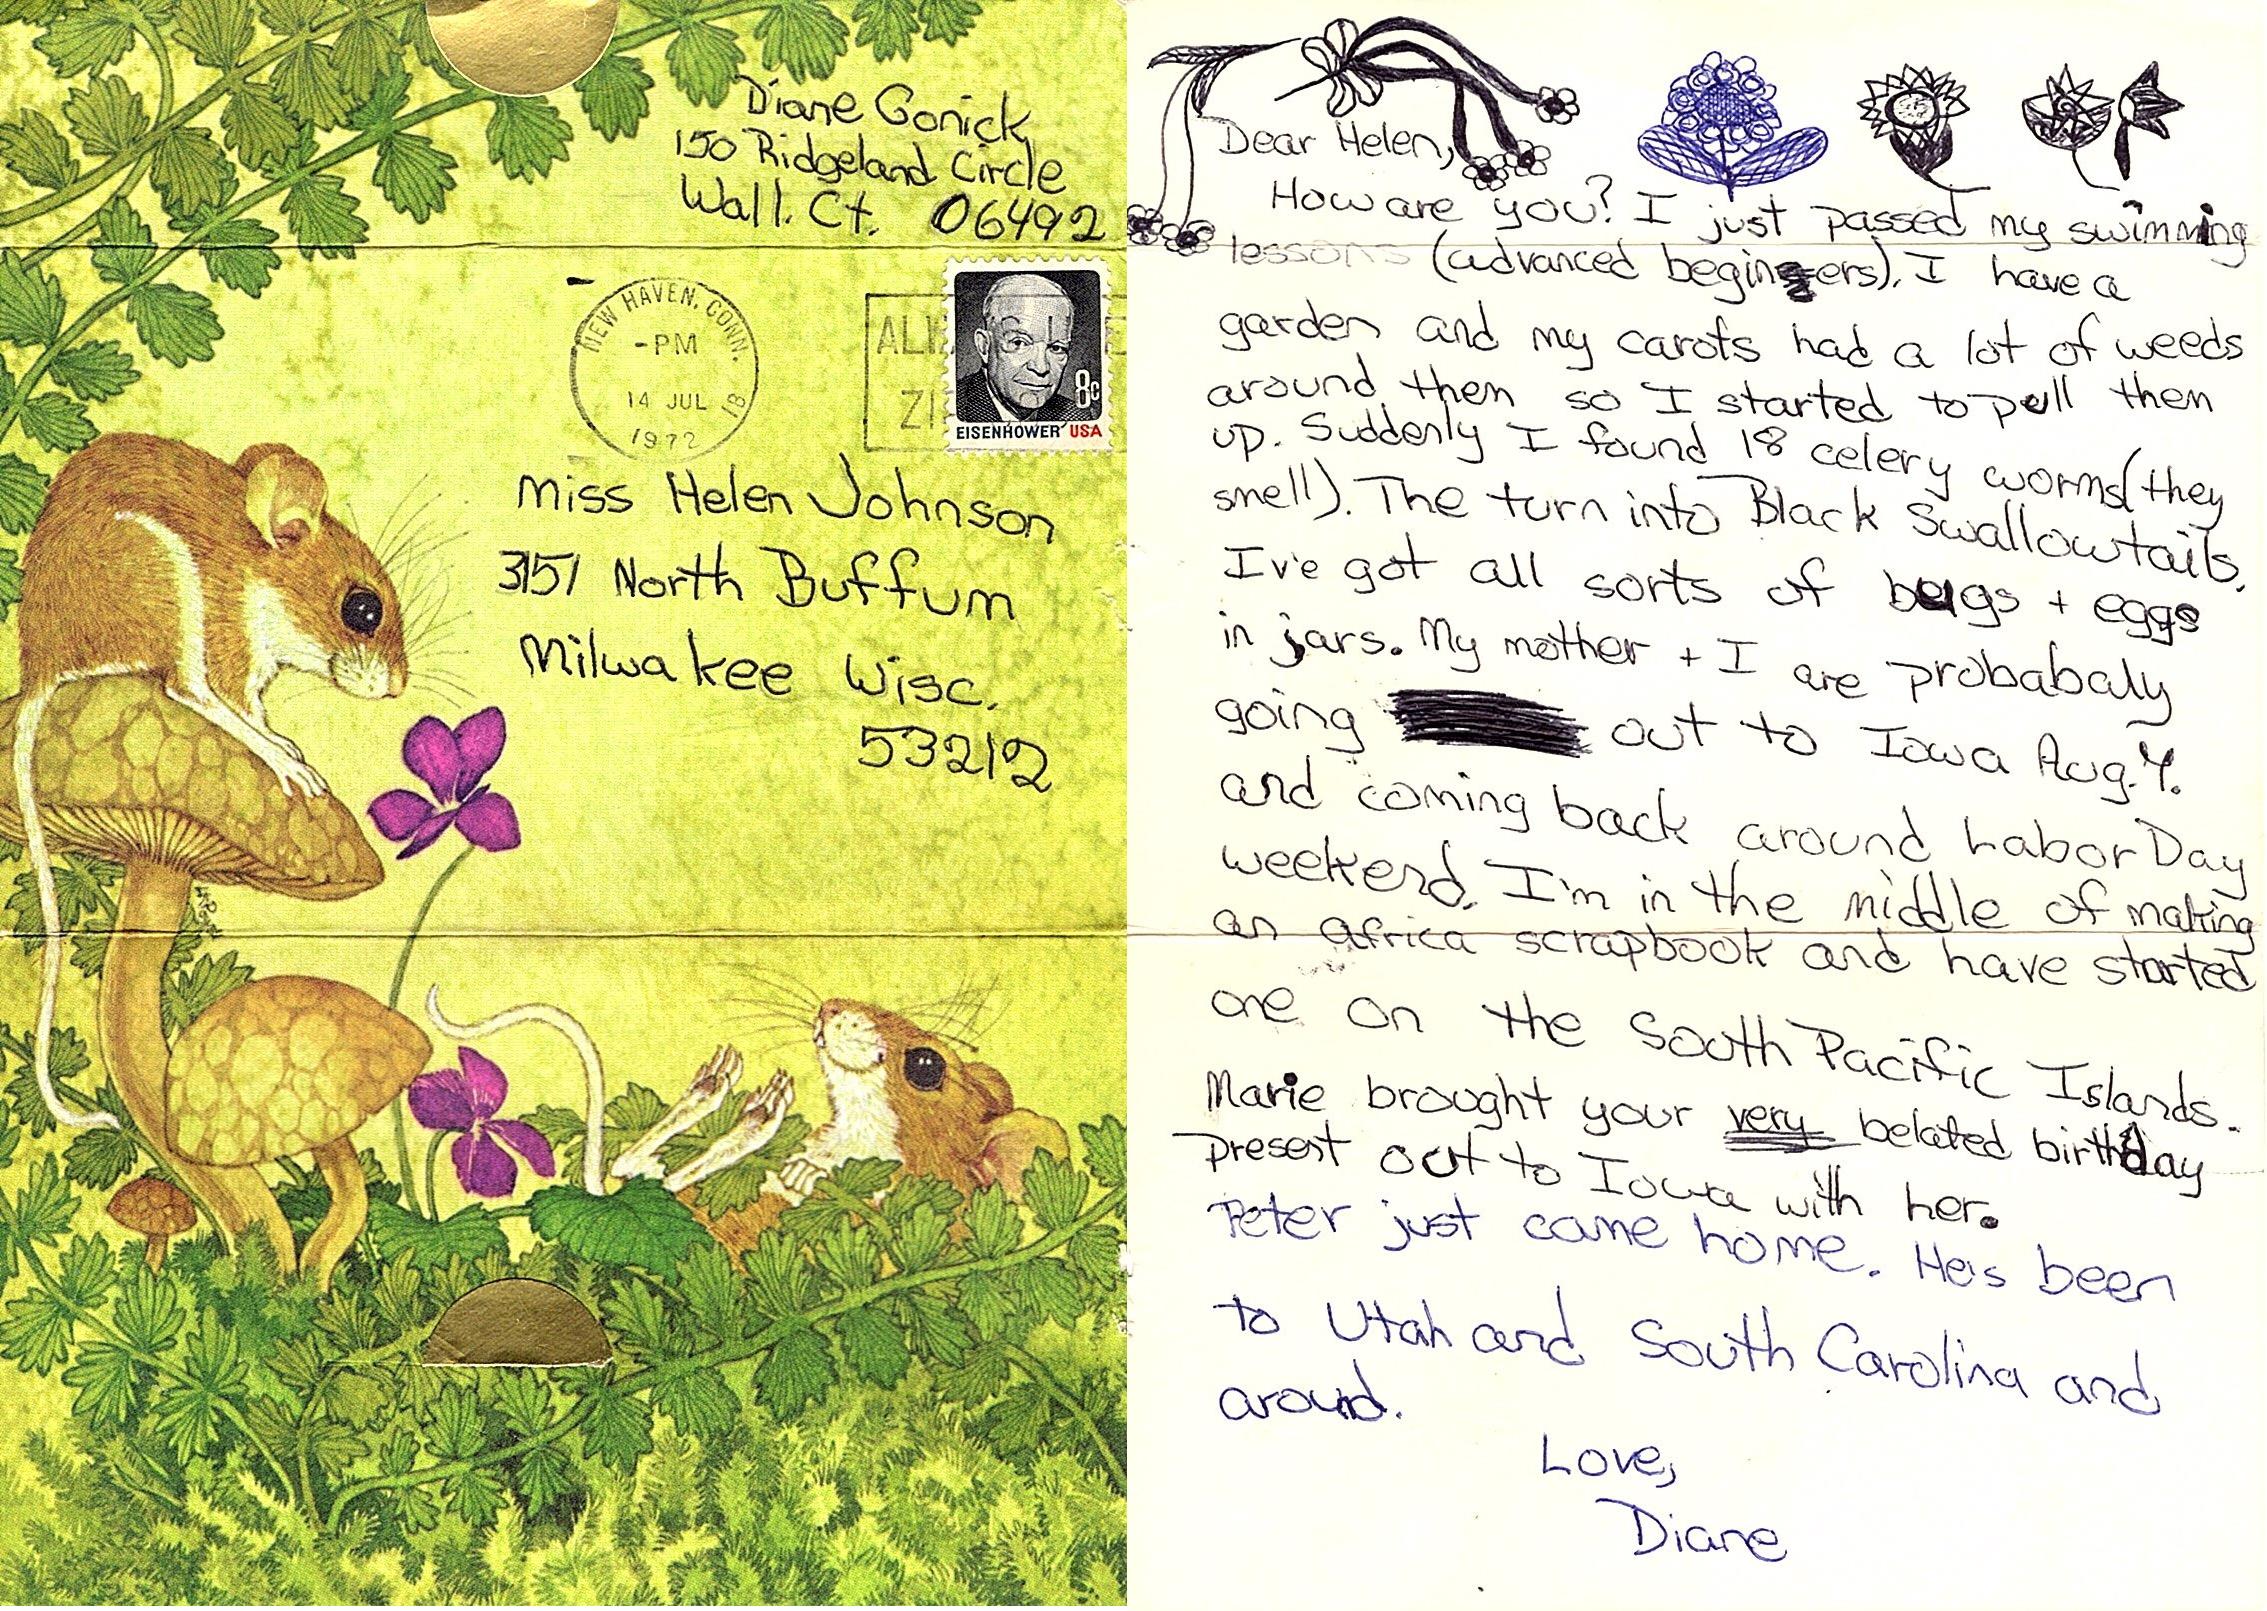 Diane Gonick
150 Ridgeland Circle
Wall. Ct. 06492
NEW HAVEN, CONN.
-PM
14 JUL
18
1972
ZI
8c
EISENHOWER USA
Miss Helen Johnson
3151 North Buffum
Milwakee Wisc.
53212
Dear Helen,
How are you? I just passed my swimming
lessons (advanced beginers). I have a
garden and my carots had a lot of weeds
around them so I started to pull them
up. Suddenly I found 18 celery worms (they
smell). The turn into Black Swallowtails.
I've got all sorts of bugs + eggs
in jars. My mother + I are probabaly
going out to Iowa Aug. 4.
and coming back around Labor Day
weekend. I'm in the middle of making
an africa scrapbook and have started
one on the South Pacific Islands.
Marie brought your very belated birthday
present out to Iowa with her.
Peter just came home. He's been
to Utah and South Carolina and
around.
Love,
Diane